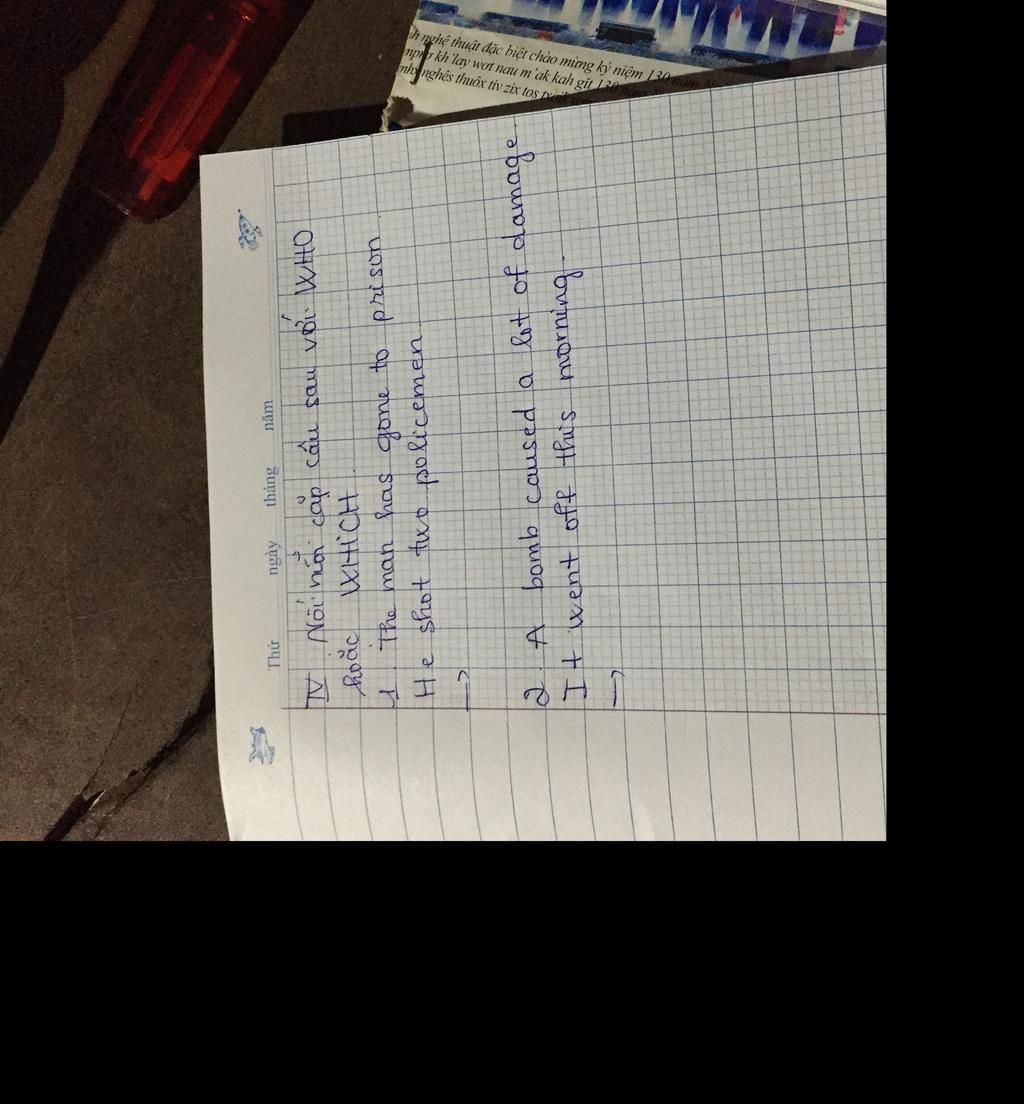 h nghệ thuật đặc biệt chào mừng kỷ niệm 130 năm
kh'lay wơt nau m'ak kah gĭt 130
nghês thuôx tiv zix tos txaik
Thứ ngày tháng năm
IV. Nối mỗi cặp câu sau với WHO
hoặc WHICH.
1. The man has gone to prison.
He shot two policemen.
→
2. A bomb caused a lot of damage
It went off this morning.
→